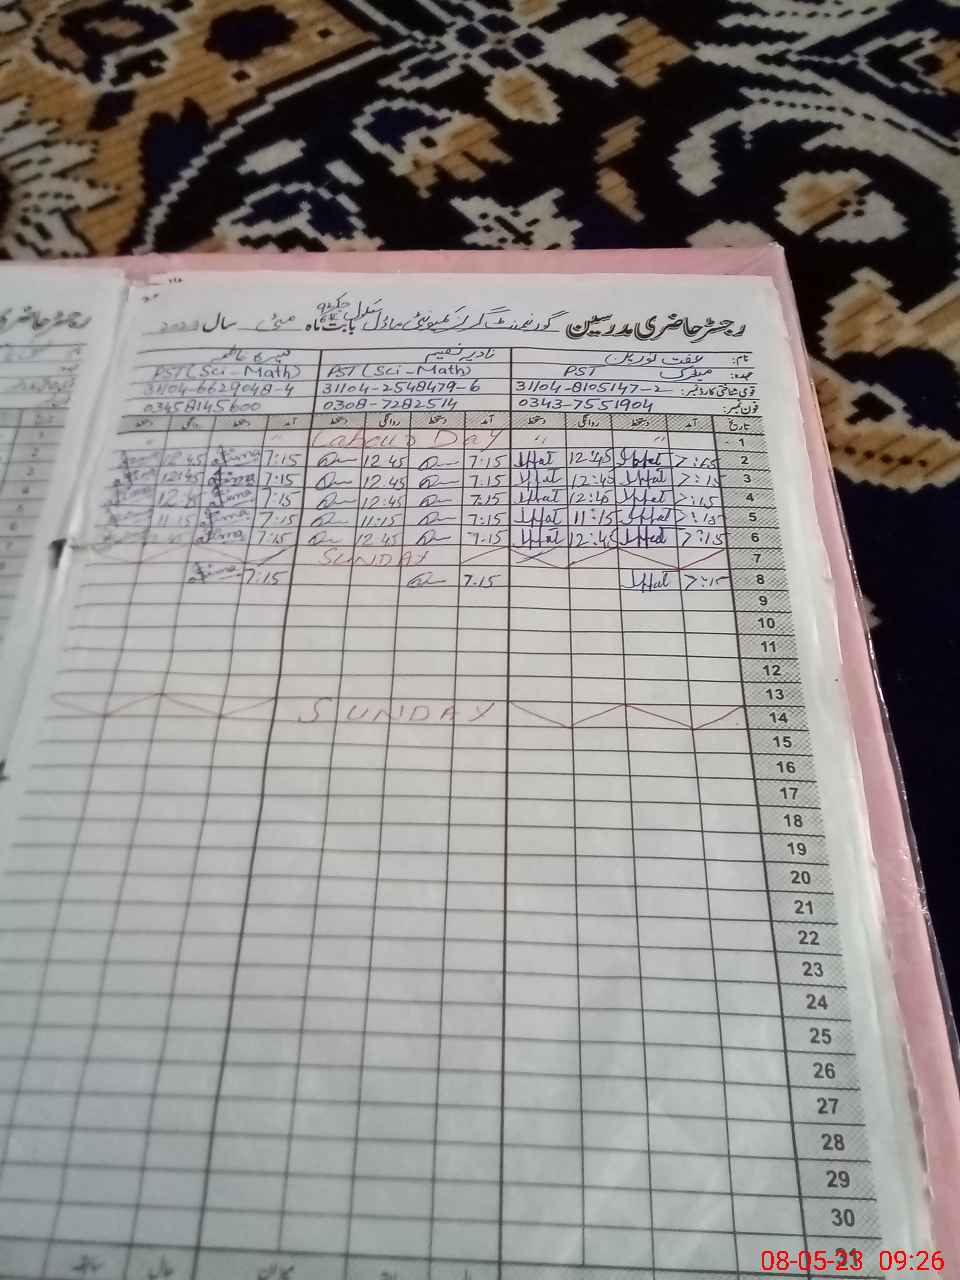 رجسٹر حاضری مدرسین گورنمنٹ گرلز کمیونٹی ماڈل سکول بابت ماہ مئی سال 2023
نام: عفت نورین نادیہ نعیم
عہدہ: میٹرک PST PST (Sci-Math) PST (Sci-Math)
قومی شناختی کارڈ نمبر: 31104-8105147-2 31104-2548479-6 31104-6629048-4
فون نمبر: 0343-7551904 0308-7282514 03458145600
تاریخ آمد دستخط روانگی دستخط آمد دستخط روانگی دستخط آمد دستخط روانگی دستخط
1 " " Labour Day " "
2 7:15 Iffat 12:45 Iffat 7:15 12 45 7:15 12:45
3 7:15 Iffat 12:45 Iffat 7.15 12.45 7:15 12:45
4 7:15 Iffat 12:45 Iffat 7.15 12:45 7:15 12:45
5 7:15 Iffat 11:15 Iffat 7:15 11:15 7:15 11:15
6 7:15 Iffat 12:45 Iffat 7.15 12.45 7:15 12:45
7 SUNDAY
8 7:15 Iffat 7.15 7:15
9
10
11
12
13
14 SUNDAY
15
16
17
18
19
20
21
22
23
24
25
26
27
28
29
30
31
08-05-23 09:26